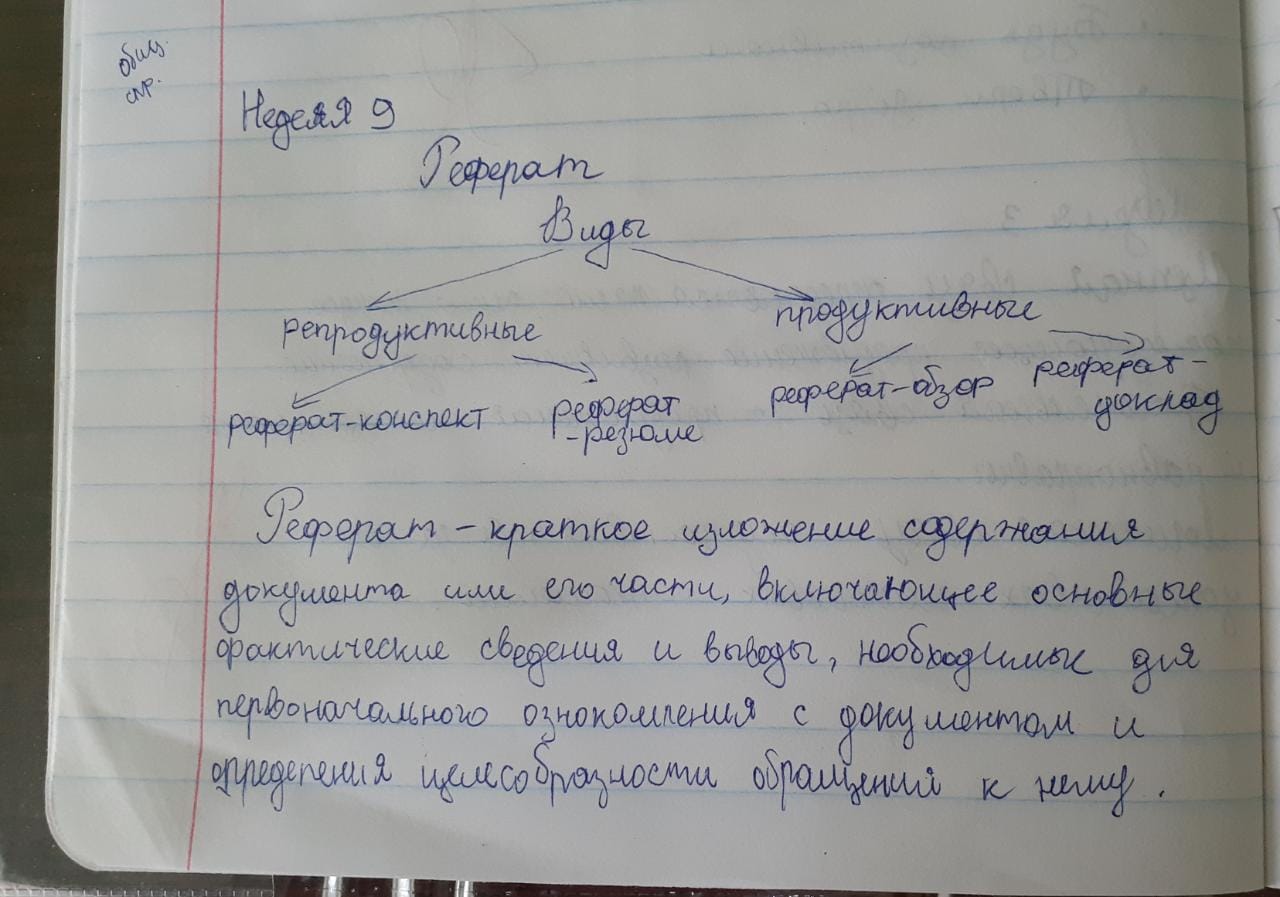 общ.
стр.
Неделя 9
Реферат
Виды
репродуктивные продуктивные
реферат-конспект реферат -резюме реферат-обзор реферат-доклад
Реферат - краткое изложение содержания
документа или его части, включающее основные
фактические сведения и выводы, необходимые для
первоначального ознокомления с документом и
определения целесобразности обращений к нему.